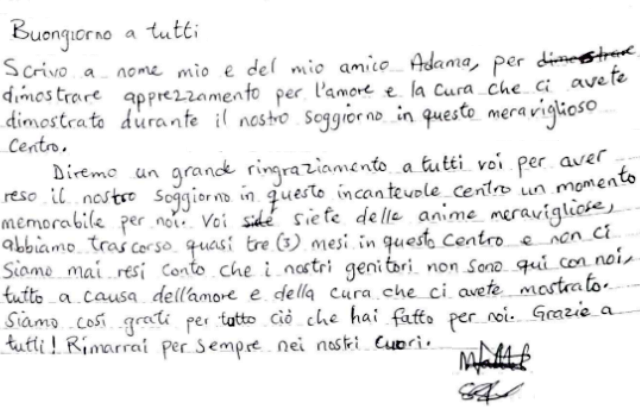 Buongiorno a tutti
Scrivo a nome mio e del mio amico Adama, per dimostrare
dimostrare apprezzamento per l'amore e la cura che ci avete
dimostrato durante il nostro soggiorno in questo meraviglioso
Centro.
Diremo un grande ringraziamento a tutti voi per aver
reso il nostro soggiorno in questo incantevole centro un momento
memorabile per noi. Voi siete delle anime meravigliose,
abbiamo trascorso quasi tre (3) mesi in questo centro e non ci
Siamo mai resi conto che i nostri genitori non sono qui con noi,
tutto a causa dell'amore e della cura che ci avete mostrato.
Siamo così grati per tutto ciò che hai fatto per noi. Grazie a
tutti! Rimarrai per sempre nei nostri cuori.